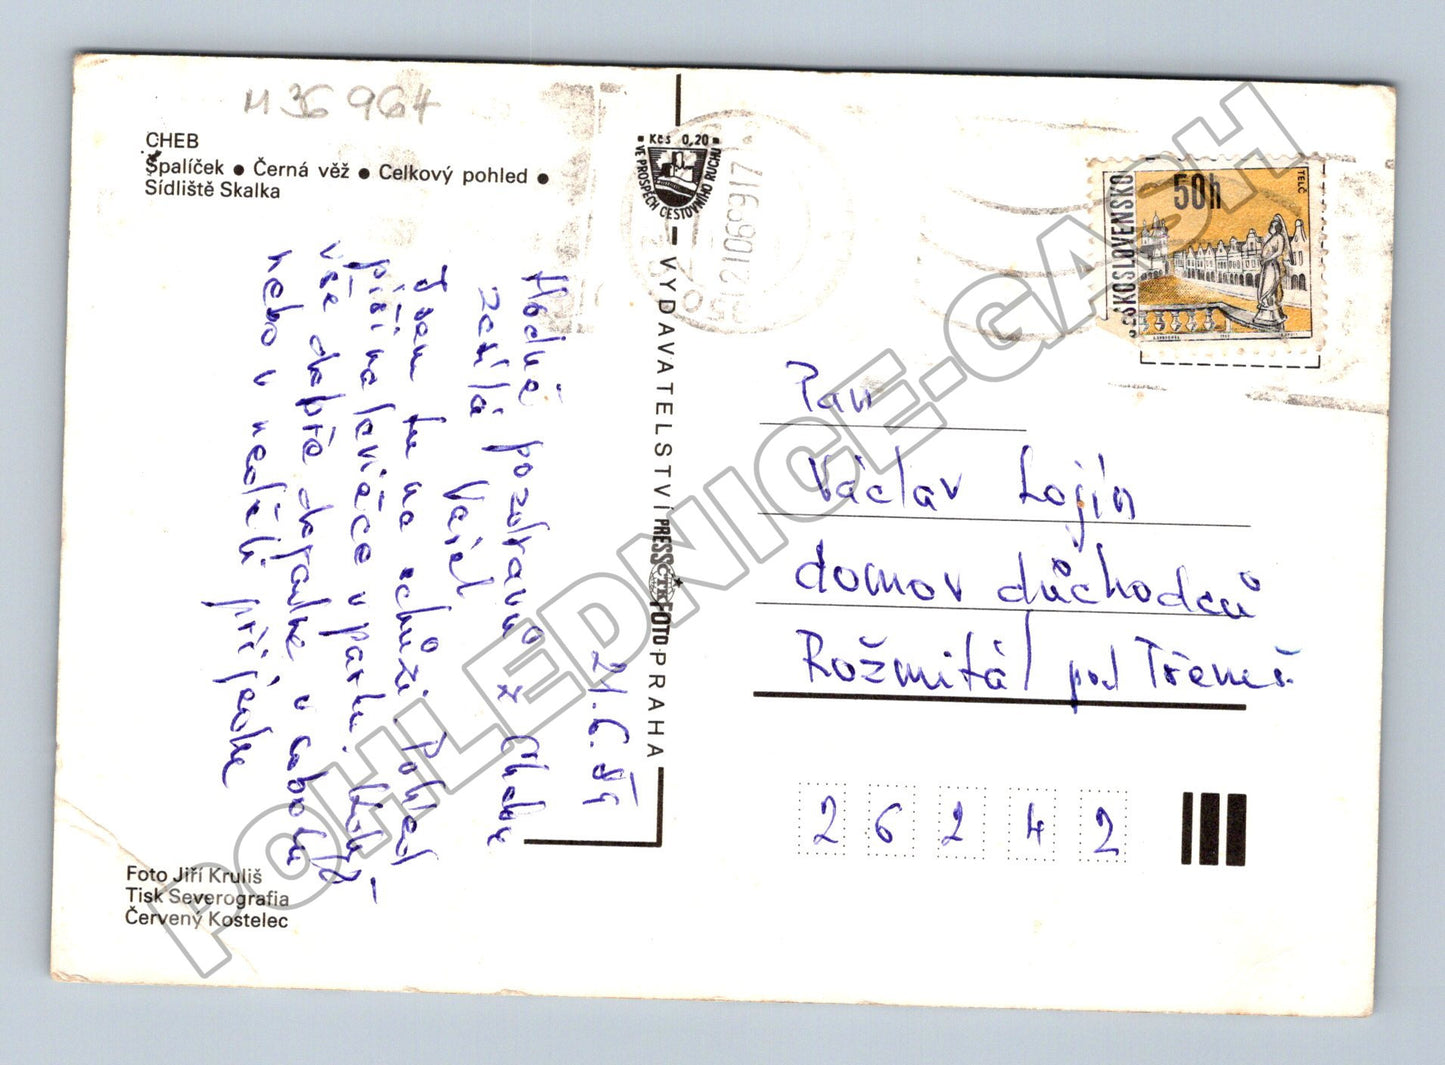 M 36 964
CHEB
Špalíček ● Černá věž ● Celkový pohled ●
Sídliště Skalka
21. 6. 84
Hodně pozdravů z Chebu
zasílá Vašek
Jsem tu na schůzi. Pohled
píši na lavičce v parku.
vše dobře dopadne v sobotu
nebo v neděli přijedu
Foto Jiří Kruliš
Tisk Severografia
Červený Kostelec
Kčs 0,20
VE PROSPĚCH CESTOVNÍHO RUCHU
VYDAVATELSTVÍ PRESSFOTO·PRAHA
ČTK
ČESKOSLOVENSKO
50h
TELČ
Pan
Václav Lojín
domov důchodců
Rožmitál pod Třemš.
26242
POHLEDNICE-GASH